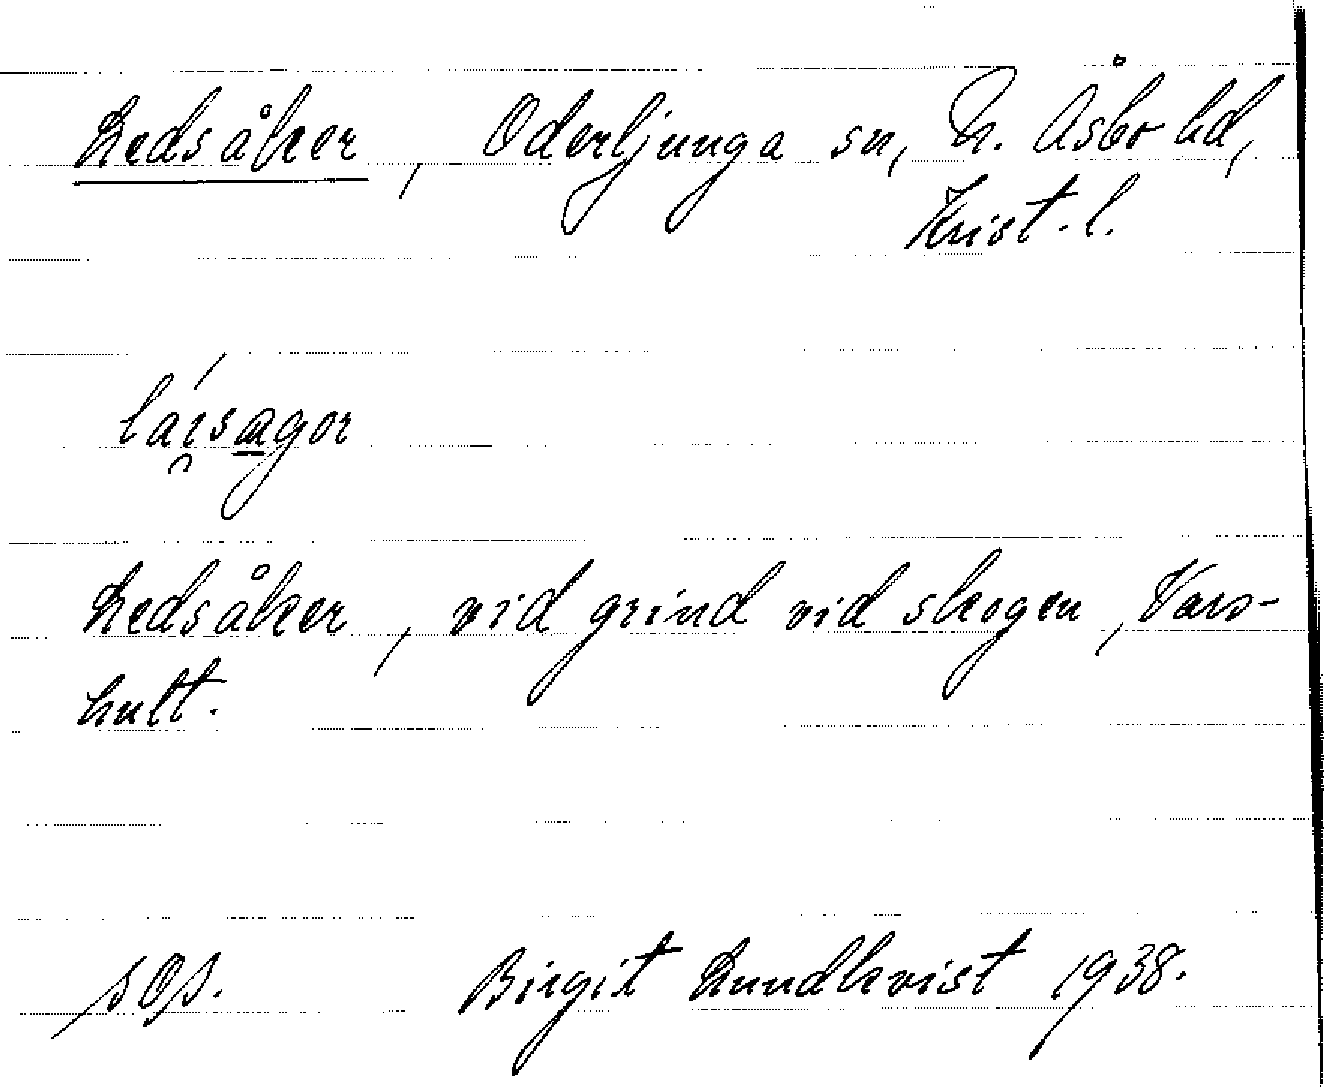 Ledsåker, Oderljunga sn, N. Åsbo hd,
Krist. l.
laisagor
Ledsåker, vid grind vid skogen, Vars-
hult.
sOs. Birgit Lundkvist 1938.